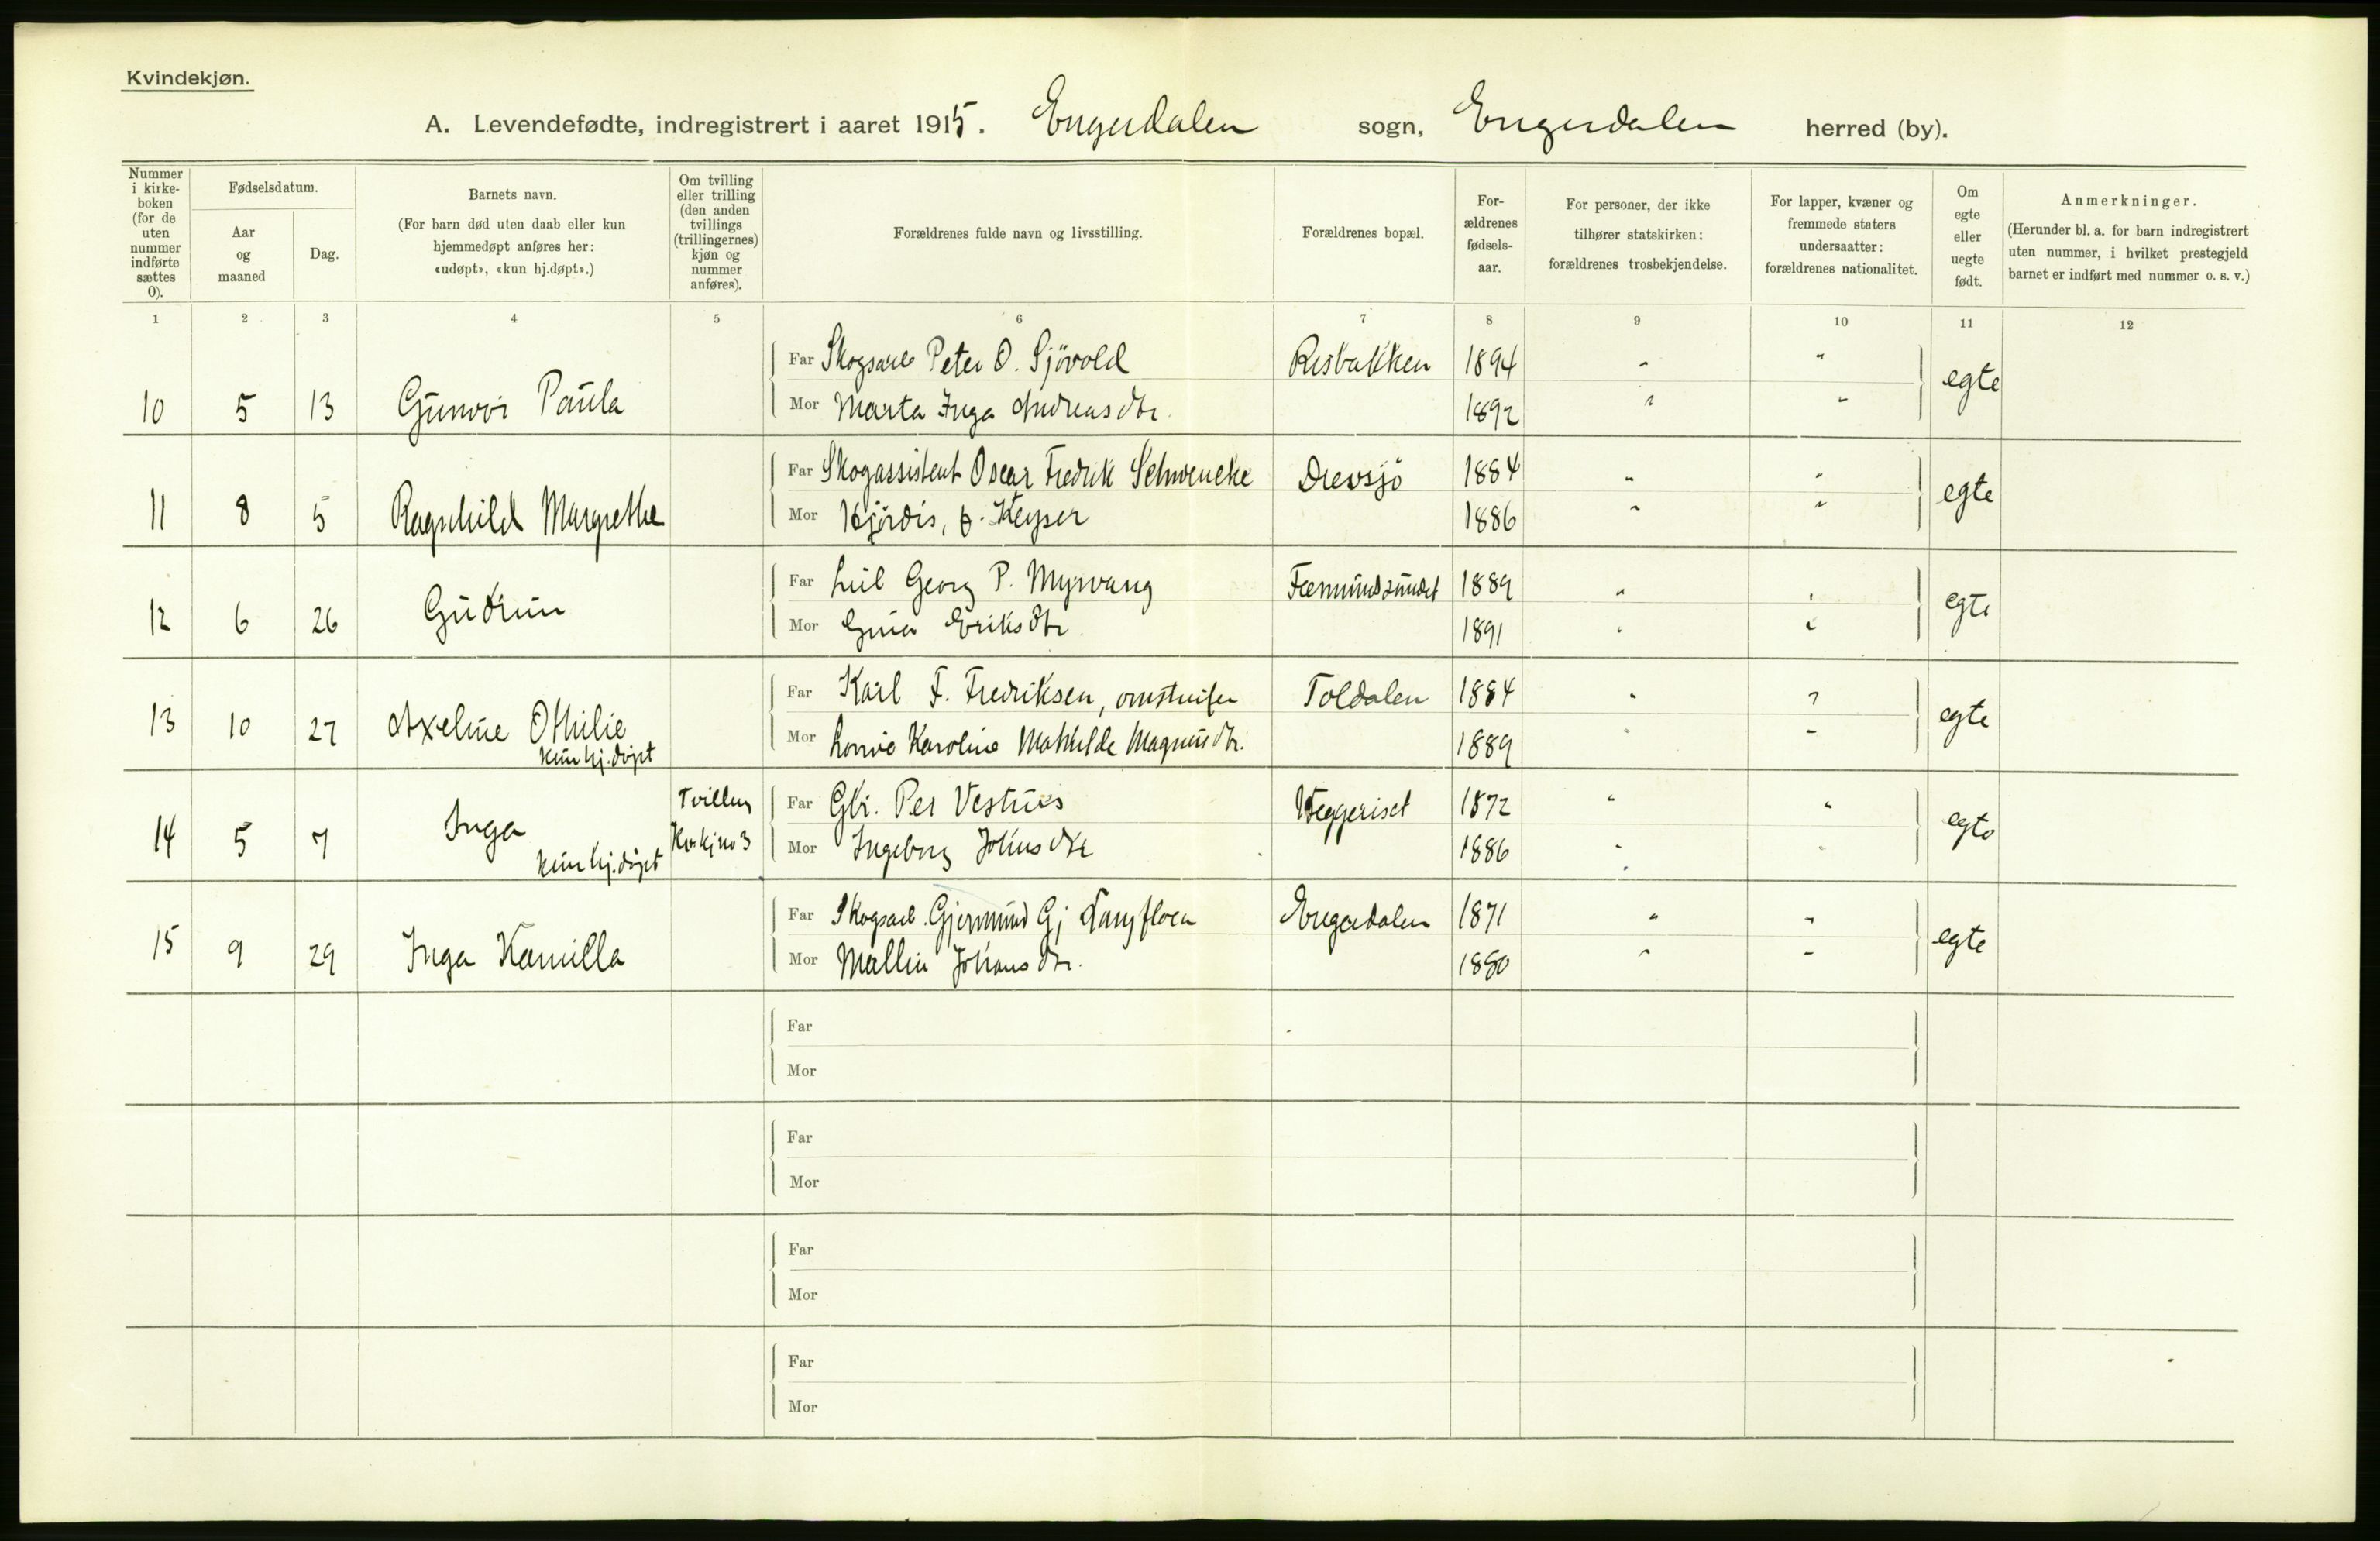 Kvindekjøn.
A. Levendefødte, indregistrert i aaret 1915. Engerdalen sogn, Engerdalen herred (by).
Nummer i kirke-boken (for de uten nummer indførte sættes 0).
Fødselsdatum.
Aar og maaned
Dag.
Barnets navn.
(For barn død uten daab eller kun hjemmedøpt anføres her: «udøpt», «kun hj.døpt».)
Om tvilling eller trilling (den anden tvillings (trillingernes) kjøn og nummer anføres).
Forældrenes fulde navn og livsstilling.
Forældrenes bopæl.
For-ældrenes fødsels-aar.
For personer, der ikke tilhører statskirken: forældrenes trosbekjendelse.
For lapper, kvæner og fremmede staters undersaatter: forældrenes nationalitet.
Om egte eller uegte født.
Anmerkninger.
(Herunder bl. a. for barn indregistrert uten nummer, i hvilket prestegjeld barnet er indført med nummer o. s. v.)
1 2 3 4 5 6 7 8 9 10 11 12
Far Skogsarb Peter O. Sjövold Risbakken 1894 " "
10 5 13 Gunvor Paula egte
Mor Marta Inga Andreasdtr. 1892 " "
Far Skogassistent Oscar Fredrik Schwencke Drevsjö 1884 " "
11 8 5 Ragnhild Margrethe egte
Mor Hjördis, f. Keyser 1886 " "
Far Georg P. Myrvang Fæmundsundet 1889 " "
12 6 26 Gudrun egte
Mor Eriksdtr 1891 " "
Far Karl F. Fredriksen, omstreifer Toldalen 1884 " "
13 10 27 Axeline Othilie egte
kun hj.døpt
Mor Karoline Mathilde Magnusdtr. 1889 " "
Far Gbr. Per Vestnes Heggeriset 1872 " "
14 5 7 Inga Tvilling egte
kun hj.døpt no 3
Mor Ingeborg Johnsdtr 1886 " "
Far Skogsarb. Gjermund Gj Langfloen Engerdalen 1871 " "
15 9 29 Inga Kamilla egte
Mor Mallin Johansdtr. 1880 " "
Far
Mor
Far
Mor
Far
Mor
Far
Mor